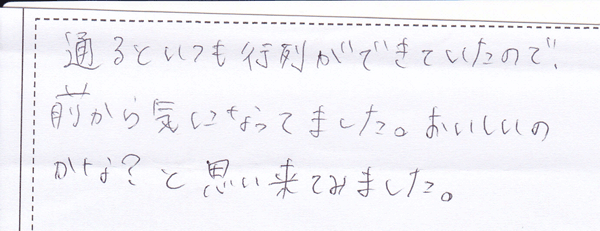 通るといつも行列ができていたので、
前から気になってました。おいしいの
かな？と思い来てみました。